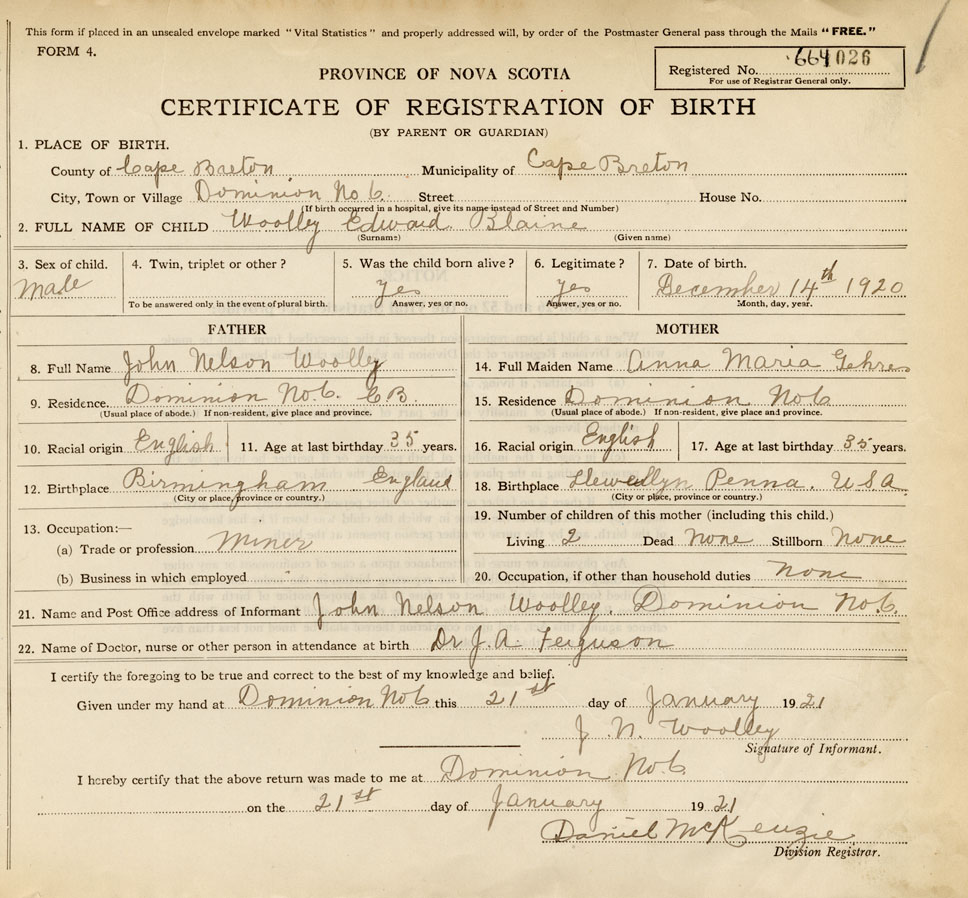 This form if placed in an unsealed envelope marked "Vital Statistics" and properly addressed will, by order of the Postmaster General pass through the Mails "FREE."
FORM 4.
Registered No. 664026
For use of Registrar General only.
PROVINCE OF NOVA SCOTIA
CERTIFICATE OF REGISTRATION OF BIRTH
(BY PARENT OR GUARDIAN)
1. PLACE OF BIRTH.
County of Cape Breton Municipality of Cape Breton
City, Town or Village Dominion No 6. Street House No.
(If birth occurred in a hospital, give its name instead of Street and Number)
2. FULL NAME OF CHILD Woolley Edward Blaine
(Surname) (Given name)
3. Sex of child. 4. Twin, triplet or other? 5. Was the child born alive? 6. Legitimate? 7. Date of birth.
Male Yes Yes December 14th 1920
To be answered only in the event of plural birth. Answer, yes or no. Answer, yes or no. Month, day, year.
FATHER
8. Full Name John Nelson Woolley
9. Residence. Dominion No 6. C.B.
(Usual place of abode.) If non-resident, give place and province.
10. Racial origin English 11. Age at last birthday 35 years.
12. Birthplace Birmingham England
(City or place, province or country.)
13. Occupation:—
(a) Trade or profession Miner
(b) Business in which employed
MOTHER
14. Full Maiden Name Anna Maria
15. Residence Dominion No 6
(Usual place of abode.) If non-resident, give place and province.
16. Racial origin English 17. Age at last birthday 35 years.
18. Birthplace Llewellyn Penna. U.S.A.
(City or place, province or country.)
19. Number of children of this mother (including this child.)
Living 2 Dead None Stillborn None
20. Occupation, if other than household duties None
21. Name and Post Office address of Informant John Nelson Woolley. Dominion No 6.
22. Name of Doctor, nurse or other person in attendance at birth Dr J. A. Ferguson
I certify the foregoing to be true and correct to the best of my knowledge and belief.
Given under my hand at Dominion No 6 this 21st day of January 1921
J. N. Woolley
Signature of Informant.
I hereby certify that the above return was made to me at Dominion No 6
on the 21st day of January 1921
Daniel McKenzie
Division Registrar.